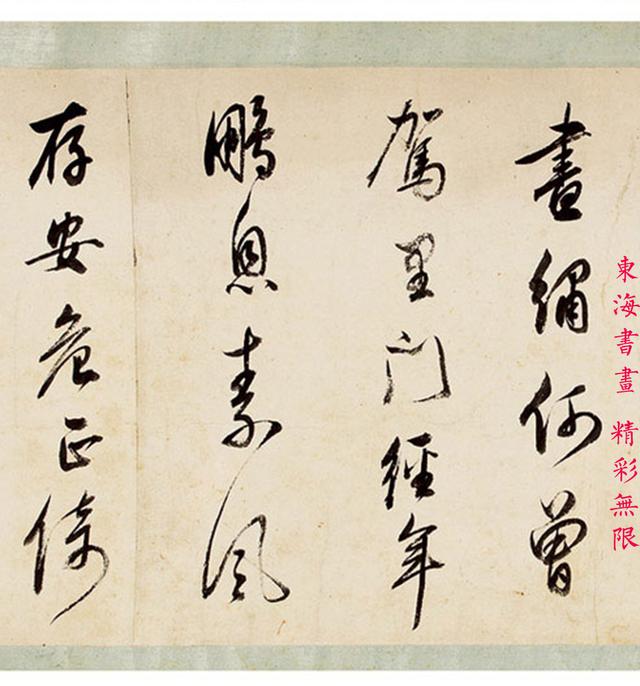 東海書畫 精彩無限
晝繡何曾
駕里門經年
鵬息素風
存安危正倚